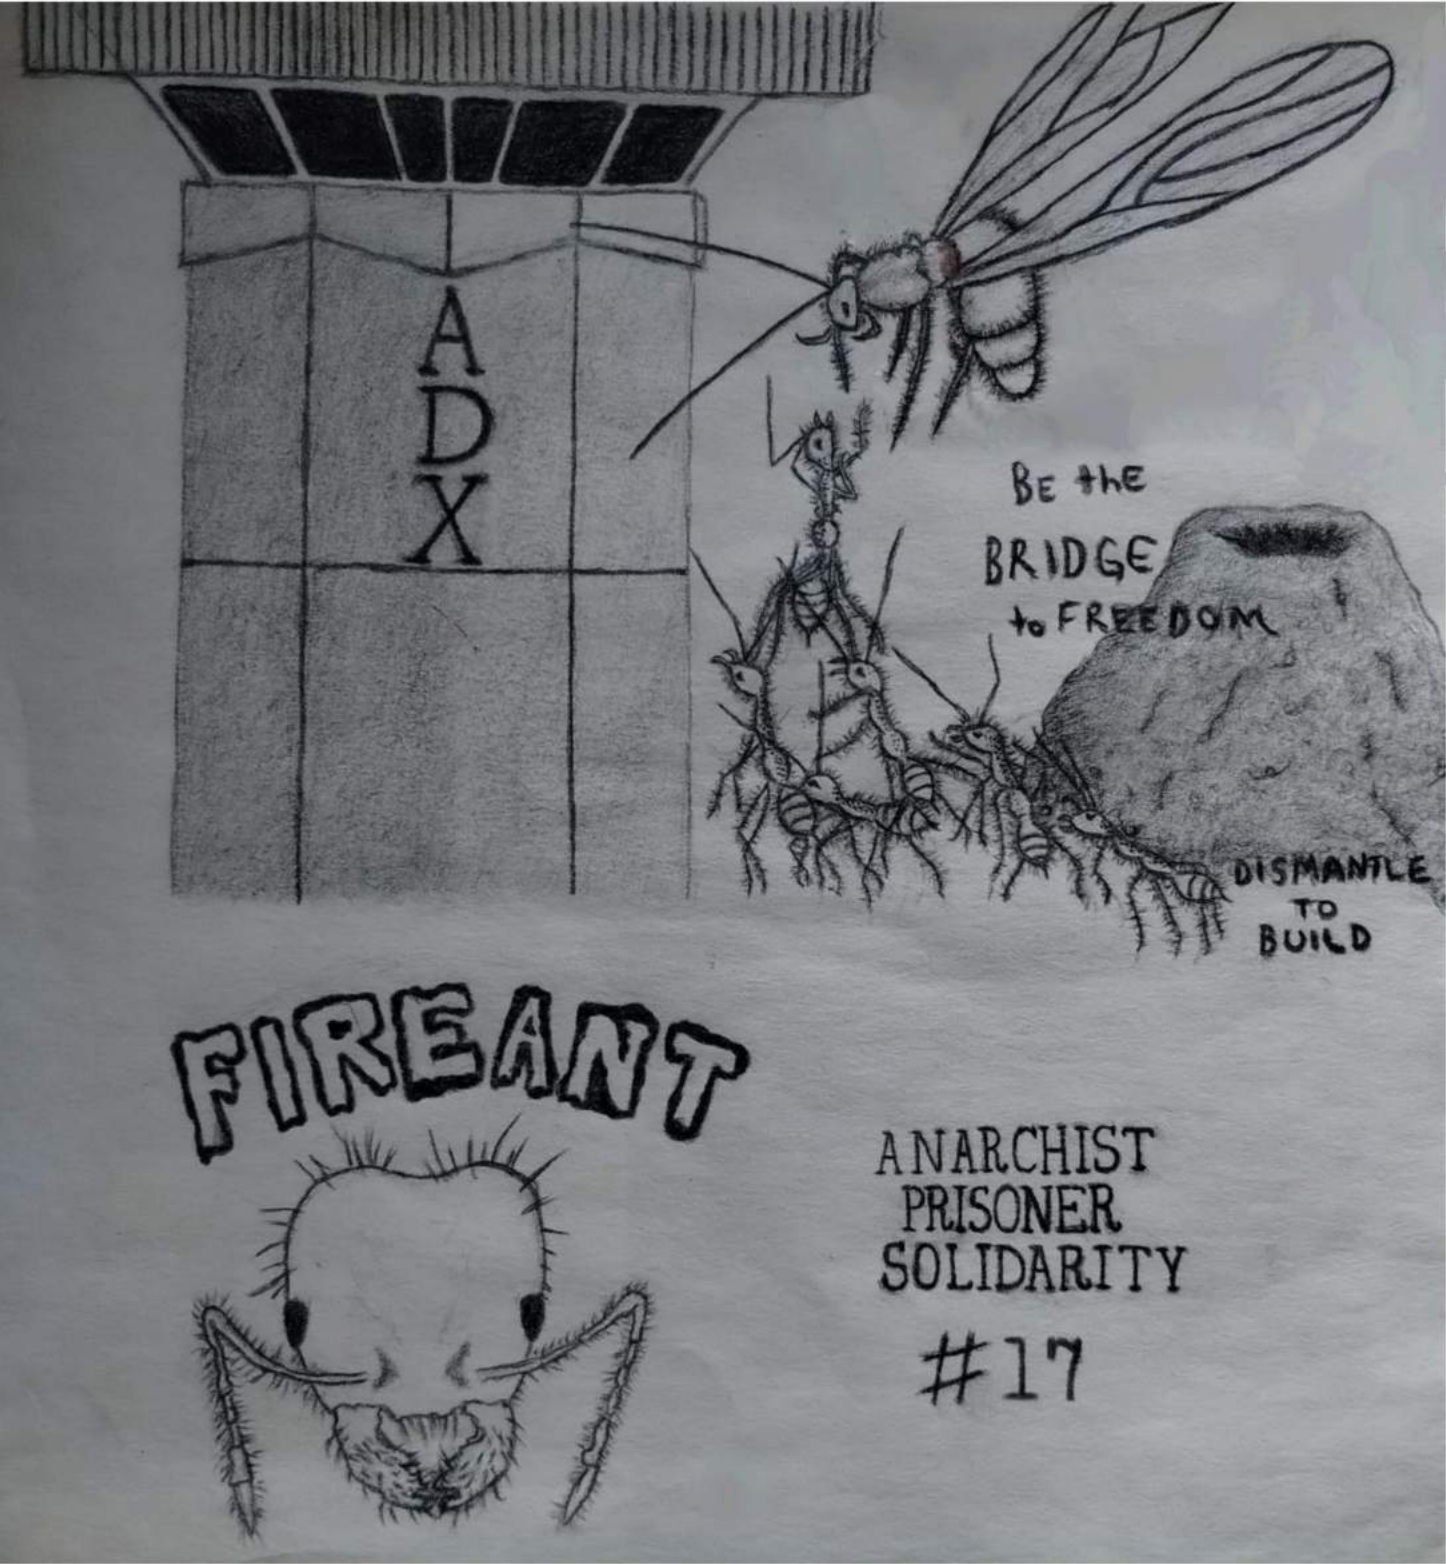 A
D
X
BE thE
BRIDGE
to FREEDOM
DISMANTLE
TO
BUILD
FIREANT
ANARCHIST
PRISONER
SOLIDARITY
#17